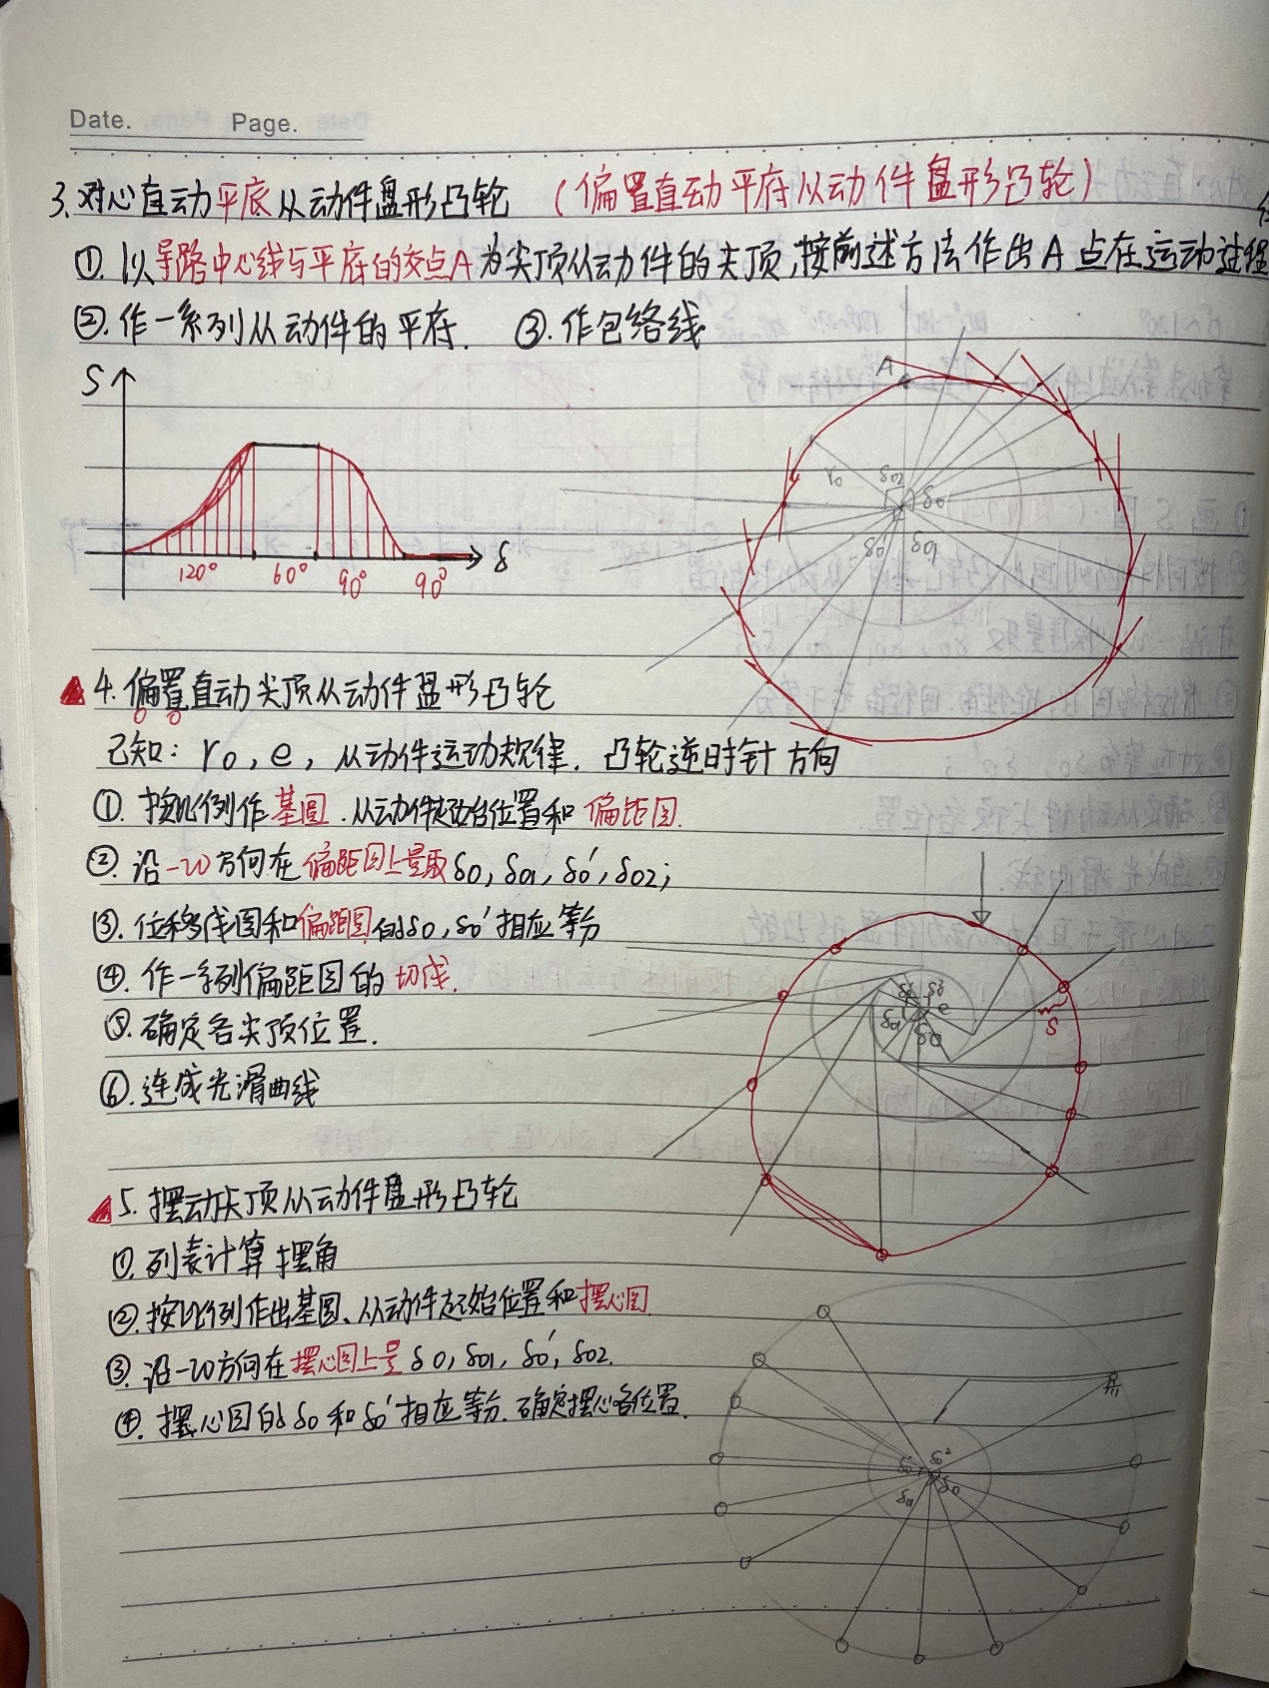 Date. Page.
3.对心直动平底从动件盘形凸轮 (偏置直动平底从动件盘形凸轮)
①.以导路中心线与平底的交点A为尖顶从动件的尖顶,按前述方法作出A点在运动过程
②.作一系列从动件的平底. ③.作包络线
S
A
r0 δ02 δ0
δ0' δ01
δ
120° 60° 90° 90°
4.偏置直动尖顶从动件盘形凸轮
已知: r0, e, 从动件运动规律. 凸轮逆时针方向
①.按比例作基圆.从动件起始位置和偏距圆.
②.沿-ω方向在偏距圆上量取δ0, δ01, δ0', δ02;
③.位移线图和偏距圆的δ0, δ0'相应等分
④.作一系列偏距圆的切线.
⑤.确定各尖顶位置.
⑥.连成光滑曲线
e
δ01 δ0
S
5.摆动尖顶从动件盘形凸轮
①.列表计算摆角
②.按比例作出基圆、从动件起始位置和摆心圆
③.沿-ω方向在摆心圆上量δ0, δ01, δ0', δ02.
④.摆心圆的δ0和δ0'相应等分.确定摆心各位置.
δ01 δ0